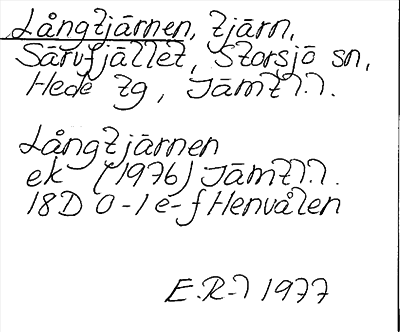 Långtjärnen, tjärn,
Särvfjället, Storsjö sn,
Hede tg, Jämtl.l.
Långtjärnen
ek (1976) Jämtl.l.
18D 0-1 e-f Henvålen
E.R-l 1977